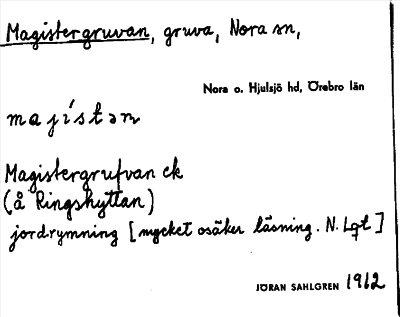 Magistergruvan, gruva, Nora sn,
Nora o. Hjulsjö hd, Örebro län
majistan
Magistergrufvan ek
(å Ringshyttan)
jordrymning [mycket osäker läsning. N. Lqt]
JÖRAN SAHLGREN 1912